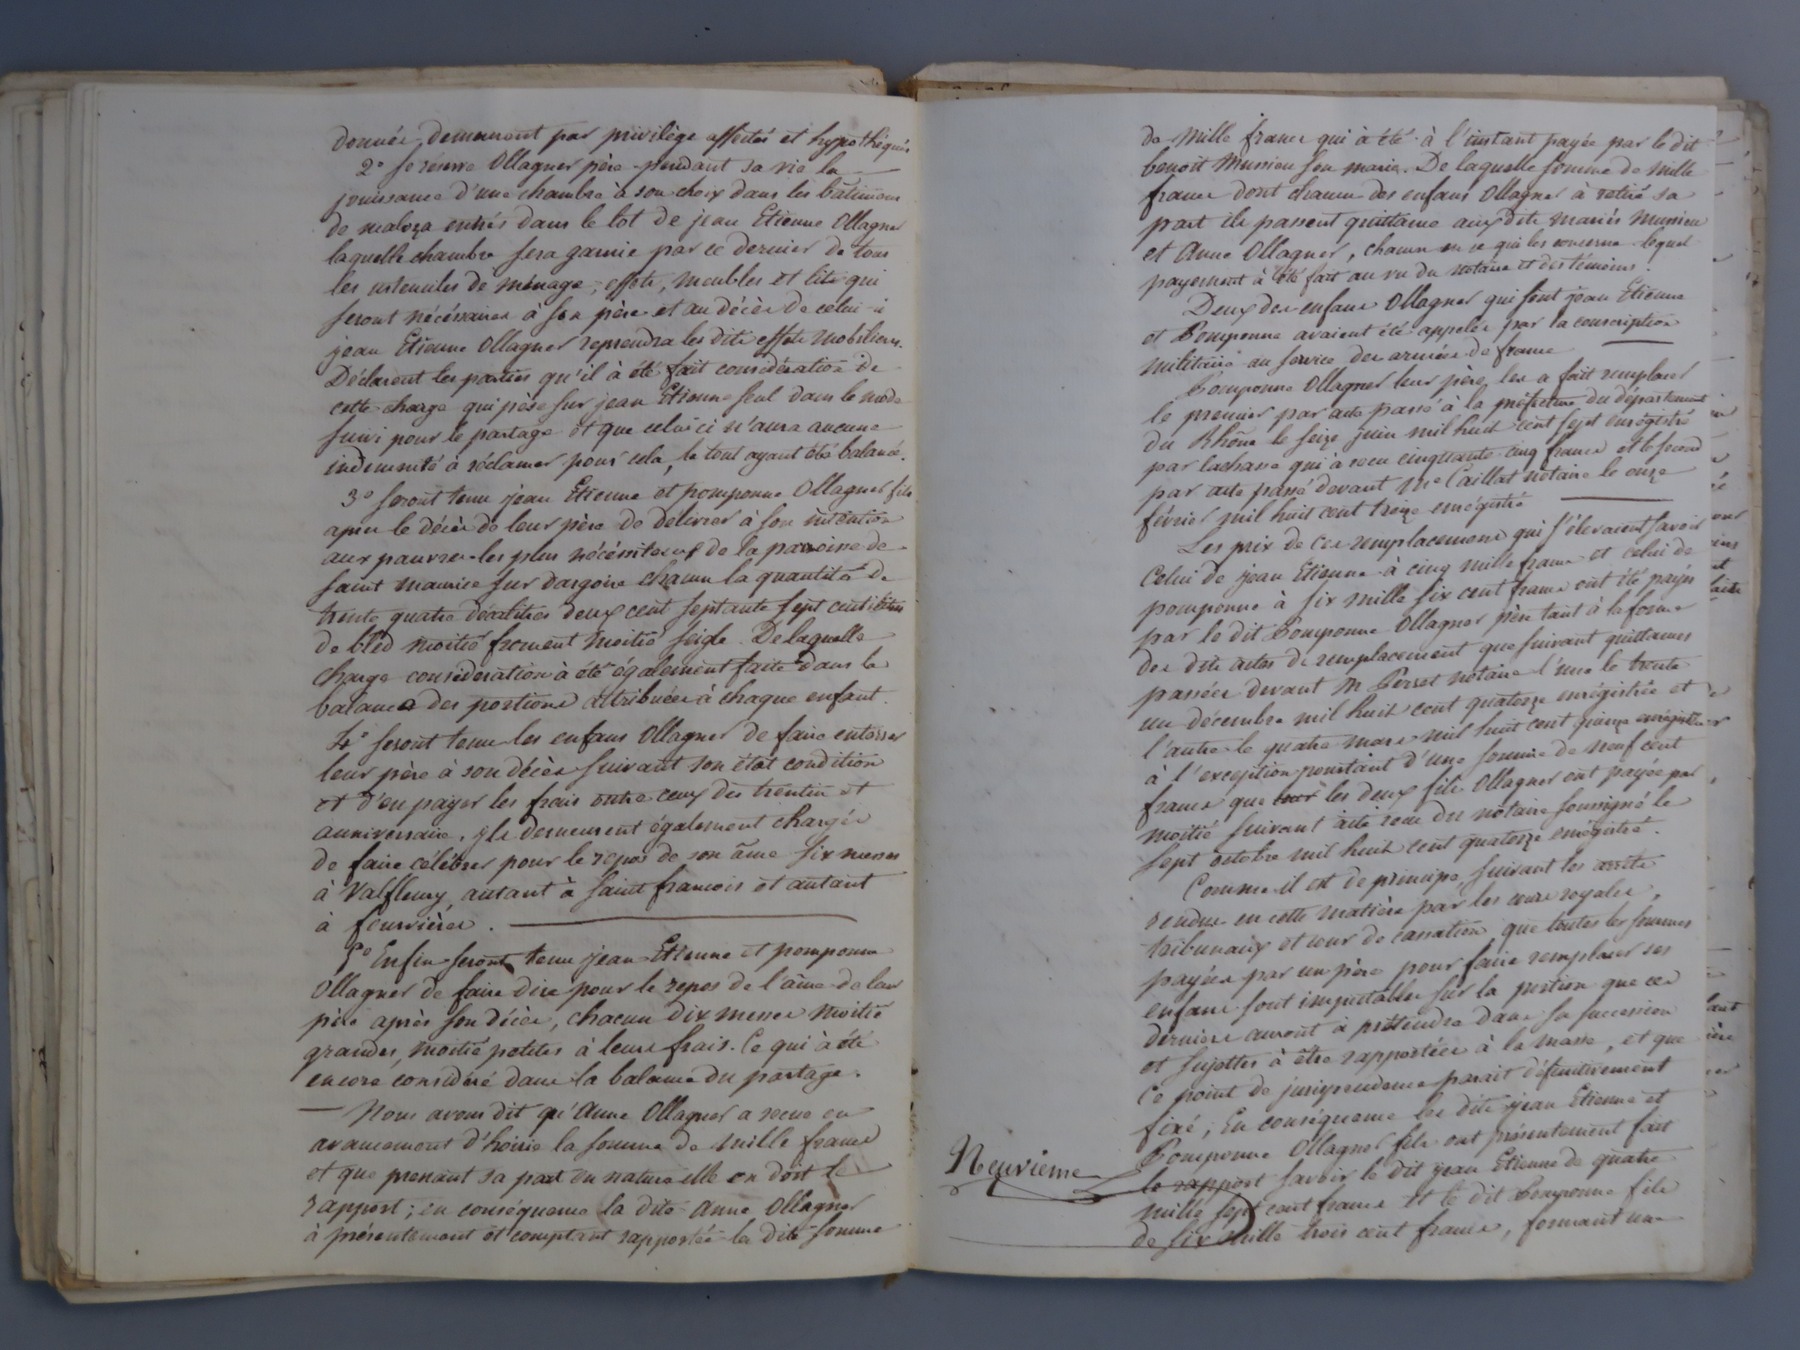 donnée, demeurent par privilège affectés et hypothéqués
2° Se réserve Ollagner père pendant sa vie la
jouissance d'une chambre à son choix dans les bâtimens
de maloza entrés dans le lot de jean Etienne Ollagner
laquelle chambre sera garnie par ce dernier de tous
les ustenciles de ménage, effets, meubles et lits qui
seront nécéssaires à son père et au décès de celui-ci
jean Etienne Ollagner reprendra les dits effets mobiliers.
Déclarent les parties qu'il à été fait considération de
cette charge qui pèse sur jean Etienne seul dans le mode
suivi pour le partage et que celui ci n'aura aucune
indemnité à réclamer pour cela, le tout ayant été balancé.
3° seront tenu jean Etienne et pomponne Ollagner fils
après le décès de leur père de délivrer à son intention
aux pauvres les plus nécéssiteux de la paroisse de
saint maurice sur dargoire chacun la quantité de
trente quatre décalitres deux cent septante sept centilitres
de bled moitié froment moitié seigle. De laquelle
charge considération à été également faite dans la
balance des portions attribuées à chaque enfant.
4° seront tenu les enfans Ollagner de faire enterrer
leur père à son décès suivant son état condition
et d'en payer les frais outre ceux des trentin et
anniversaire. yls demeurent également chargés
de faire célébrer pour le repos de son âme six messes
à Valfleury, autant à saint francois et autant
à fourvières.
5° Enfin seront tenu jean Etienne et pomponne
Ollagner de faire dire pour le repos de l'âme de leur
père après son décès, chacun dix messes moitié
grandes, moitié petites à leurs frais. Ce qui à été
encore considéré dans la balance du partage.
— Nous avons dit qu'Anne Ollagner a recue en
avancement d'hoirie la somme de mille francs
et que prenant sa part en nature elle en doit le
rapport; en conséquence la dite Anne Ollagner
à présentement et comptant rapportée la dite somme
de mille francs qui à été à l'instant payée par le dit
benoit Mussieu son marie. De laquelle somme de mille
francs dont chacun des enfans Ollagner à retiré sa
part ils passent quittance aux dits mariés Mussieu
et Anne Ollagner, chacun en ce qui les concerne lequel
payement à été fait au vu du notaire et des témoins.
Deux des enfans Ollagner qui sont jean Etienne
et Pomponne avaient été appelés par la conscription
militaire au service des armées de france
Pomponne Ollagner leur père les a fait remplacer
le premier par acte passé à la préfecture du département
du Rhône le seize juin mil huit cent sept enrégistré
par lachasse qui à recu cinquante cinq francs et le second
par acte passé devant Me Caillat notaire le onze
février mil huit cent treize enrégistré
Les prix de ces remplacemens qui s'élevaient savoir
celui de jean Etienne à cinq mille francs et celui de
pomponne à six mille six cent francs ont été payés
par le dit Pomponne Ollagner père tant à la forme
des dits actes de remplacement que suivant quittances
passées devant M Perset notaire l'une le trente
un décembre mil huit cent quatorze enrégistrée et
l'autre le quatre mars mil huit cent quinze enrégistrée
à l'exception pourtant d'une somme de neuf cent
francs que les deux fils Ollagner ont payée par
moitié suivant acte recu du notaire soussigné le
sept octobre mil huit cent quatorze enrégistré.
Comme il est de principe suivant les arrêts
rendus en cette matière par les cours royales,
tribunaux et cour de cassation que toutes les sommes
payées par un père pour faire remplacer ses
enfans sont imputables sur la portion que ces
derniers auront à prétendre dans sa succession
et sujettes à être rapportées à la masse, et que
ce point de jurisprudence parait définitivement
fixé; En conséquence les dits jean Etienne et
Pomponne Ollagner fils ont présentement fait
le rapport savoir le dit jean Etienne de quatre
mille sept cent francs et le dit Pomponne fils
de six mille trois cent francs, formant une
Neuvième